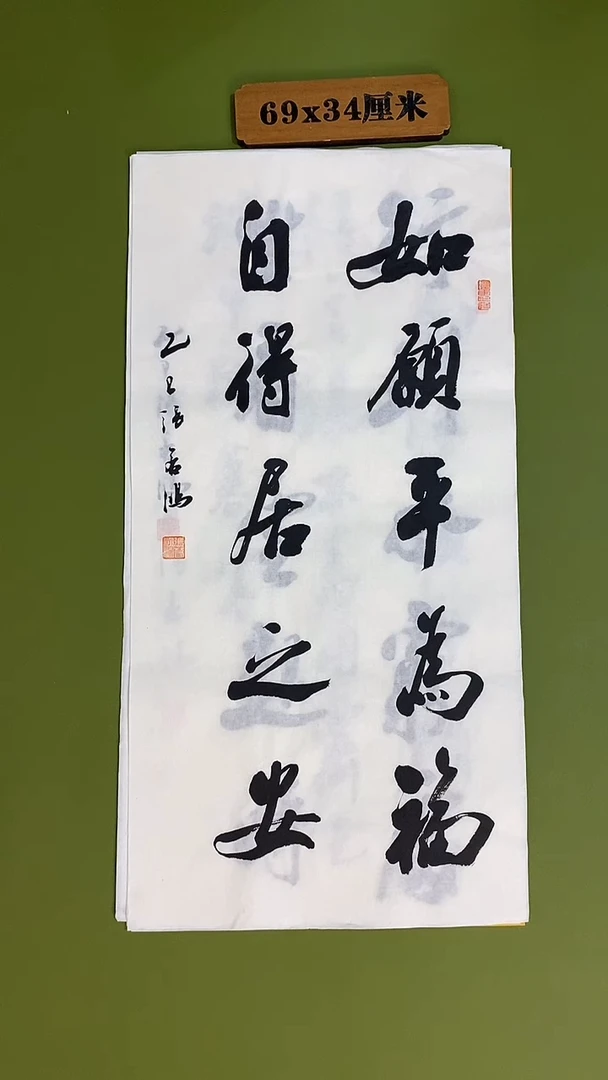 69x34厘米
如願平為福
自得居之安
乙巳張若鴻